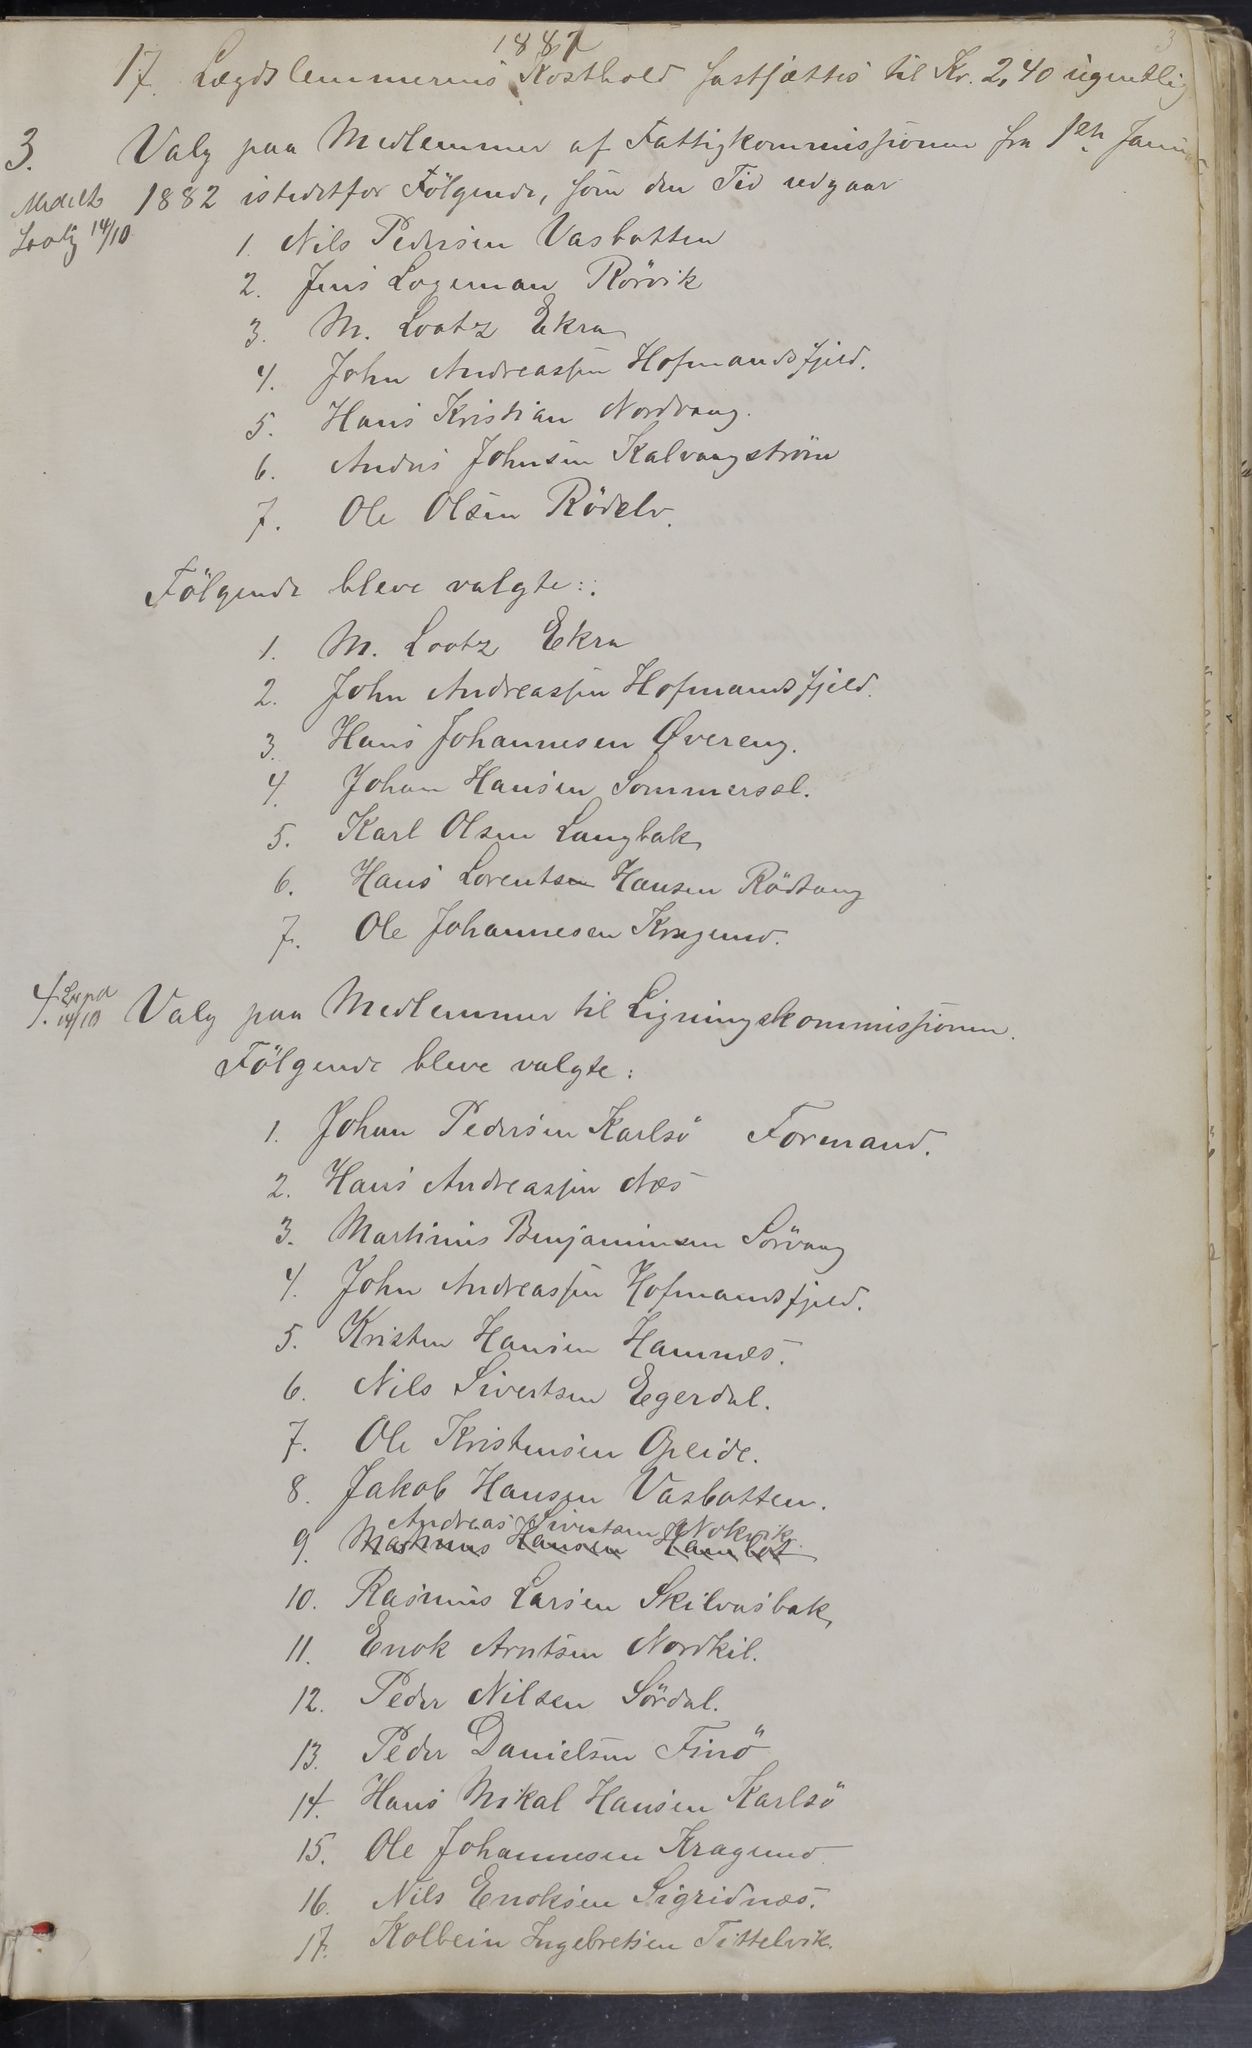 1881
3
17. Lægdslemmernes Kosthold fastsættes til Kr. 2,40 ugentlig
3. Valg paa Medlemmer af Fattigkommissionen fra 1ste Janu
Meddelt Lootz 14/10
1882 istedetfor Følgende, som den Tid udgaar
1. Nils Pedersen Vasbotten
2. Jens Logeman Rörvik
3. M. Lootz Ekra
4. John Andreassen Hofmandsfjeld.
5. Hans Kristian Nordvang.
6. Andres Johnsen Kalvangström
7. Ole Olsen Rödelv.
Fölgende bleve valgte:
1. M. Lootz Ekra
2. John Andreassen Hofmandsfjeld.
3. Hans Johannesen Øvereng.
4. Johan Hansen Sommersæl.
5. Karl Olsen Langbak
6. Hans Lorentsen Hansen Rödtang
7. Ole Johannesen Kragmo.
4. 14/10 Valg paa Medlemmer til Ligningskommissionen.
Fölgende bleve valgte:
1. Johan Pedersen Karlsö Formand.
2. Hans Andreassen Næs
3. Martinus Benjaminsen Sörvang
4. John Andreassen Hofmandsfjeld.
5. Kristen Hansen Hamnæs.
6. Nils Sivertsen Egerdal.
7. Ole Kristensen Opeide.
8. Jakob Hansen Vasbotten.
Andreas Sivertsen Nokvik.
9. Martinus Hansen Hambot
10. Rasmus Larsen Skilvasbak
11. Enok Arntsen Nordkil.
12. Peder Nilsen Sördal.
13. Peder Danielsen Finö
14. Hans Mikal Hansen Karlsö
15. Ole Johannesen Kragmo
16. Nils Enoksen Sigridnæs.
17. Kolbein Ingebretsen Tittelvik.